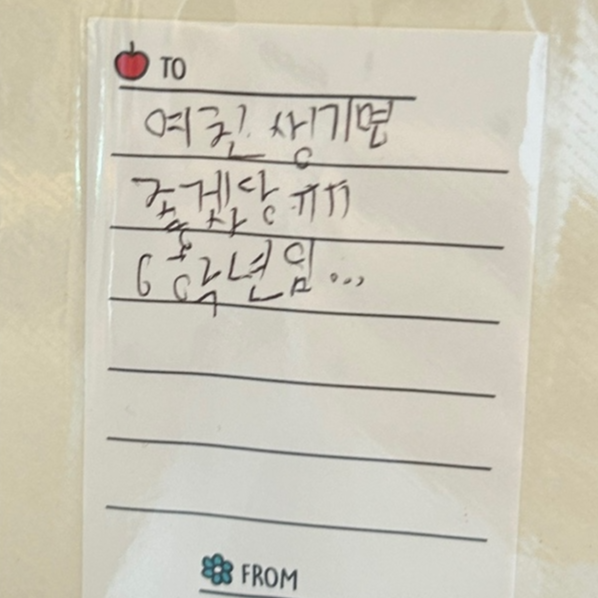 TO
여친 생기면
좋겠당 ㅠㅠ
6학년임...
FROM